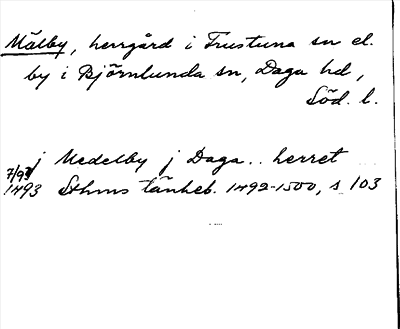 Mälby, herrgård i Frustuna sn el.
by i Björnlunda sn, Daga hd,
Söd. l.
j Medelby j Daga.. herret
7/93
1493 Sthms tänkeb. 1492-1500, s 103